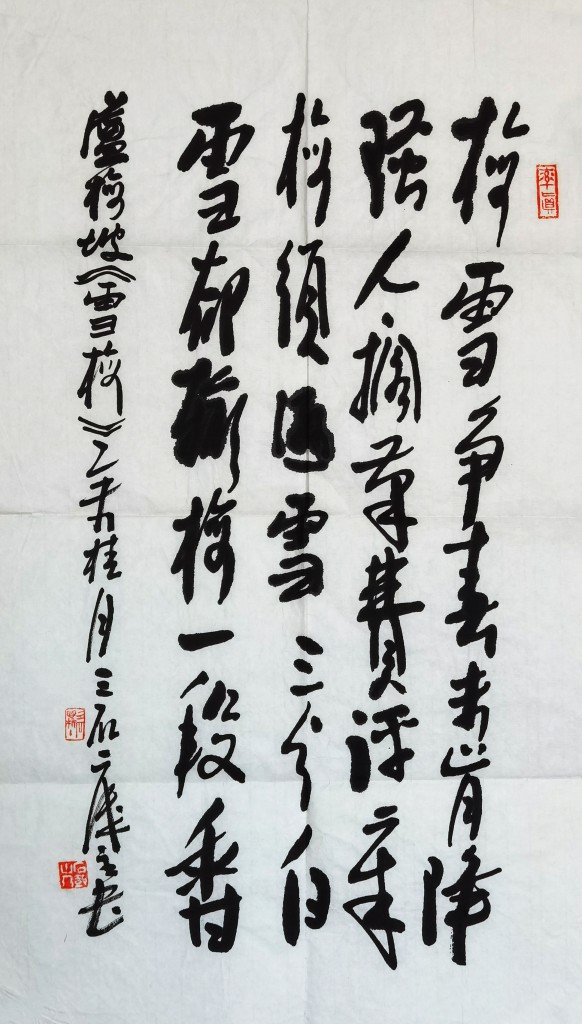 率真
梅雪争春未肯降
骚人搁筆費评章
梅須逊雪三分白
雪却输梅一段香
盧梅坡《雪梅》乙未桂月三石